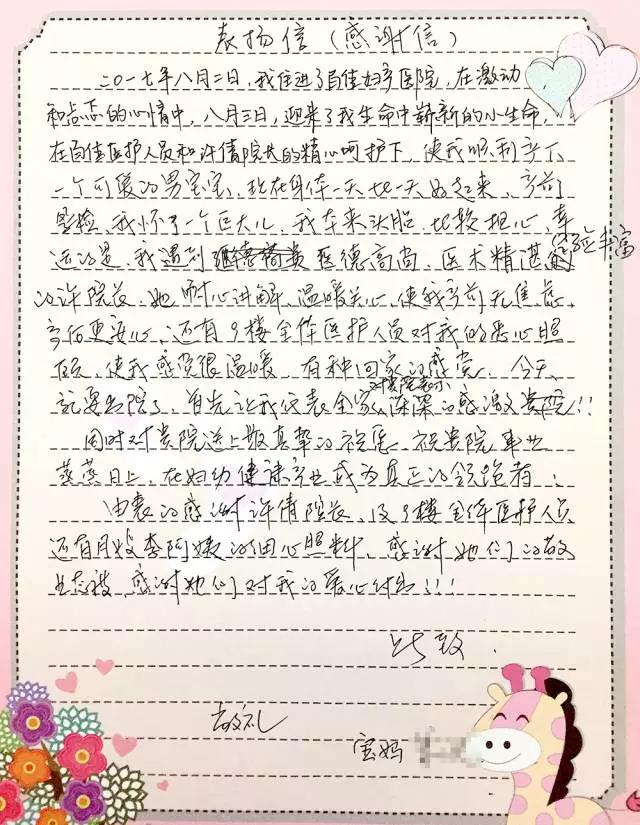 表扬信（感谢信）
二〇一七年八月二日，我住进了百佳妇产医院，在激动
和忐忑的心情中，八月三日，迎来了我生命中崭新的小生命，
在百佳医护人员和许倩院长的精心呵护下，使我顺利产下
一个可爱的男宝宝，现在身体一天比一天好起来，产前
显检，我怀了一个巨大儿，我本来头胎，比较担心，幸
运的是，我遇到医德高尚、医术精湛经验丰富
的许院长，她耐心讲解、温暖关心，使我产前无焦虑，
产后更安心，还有9楼全体医护人员对我的悉心照
顾，使我感觉很温暖，有种回家的感觉，今天
就要出院了，首先让我代表全家对贵院表示深深的感激！！
同时对贵院送上最真挚的祝愿，祝贵院事业
蒸蒸日上，在妇幼健康产业成为真正的领跑者！
由衷的感谢许倩院长，及9楼全体医护人员
还有月嫂李阿姨的细心照料，感谢她们的敬
业态度，感谢她们对我的爱心付出！！！
此致
敬礼
宝妈